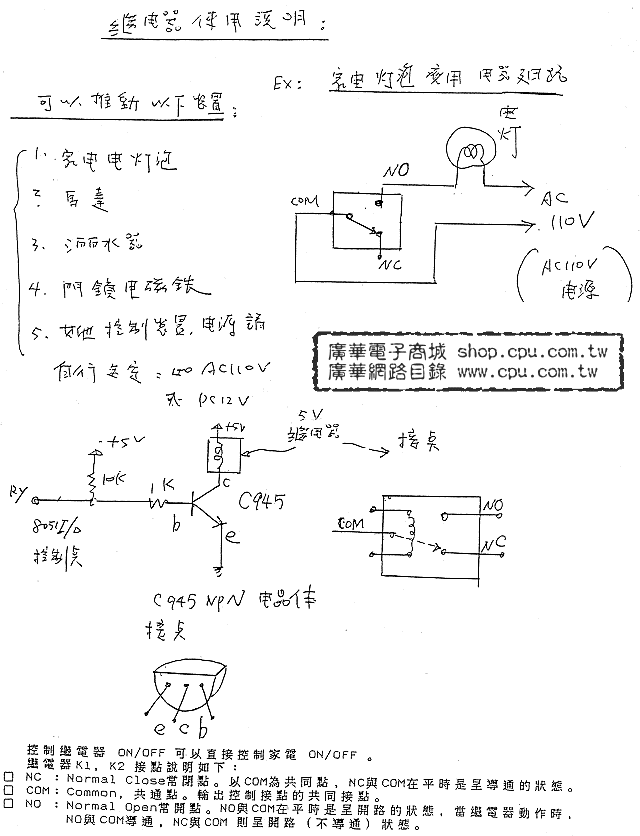 繼电器 使用 說明：
Ex： 家电 灯泡 應用 电路
可以 推動 以下 裝置：
电灯
1. 家电 电灯泡
2. 馬達
3. 洒水器
4. 門鎖 电磁鉄
5. 其他 控制 裝置, 电源 請
自行 定：如 AC110V
DC12V
NO
COM
NC
AC
110V
(AC110V
电源)
廣華電子商城 shop.cpu.com.tw
廣華網路目錄 www.cpu.com.tw
+5V
10K
1K
RY
8051 I/O
控制点
+5V
5V
繼电器
接点
C
b
e
C945
COM
NO
NC
C945 NPN 电晶体
接点
e c b
控制繼電器 ON/OFF 可以直接控制家電 ON/OFF 。
繼電器K1, K2 接點說明如下：
□ NC ：Normal Close常閉點。以COM為共同點，NC與COM在平時是呈導通的狀態。
□ COM：Common, 共通點。輸出控制接點的共同接點。
□ NO ：Normal Open常開點。NO與COM在平時是呈開路的狀態，當繼電器動作時，
NO與COM導通，NC與COM 則呈開路（不導通）狀態。